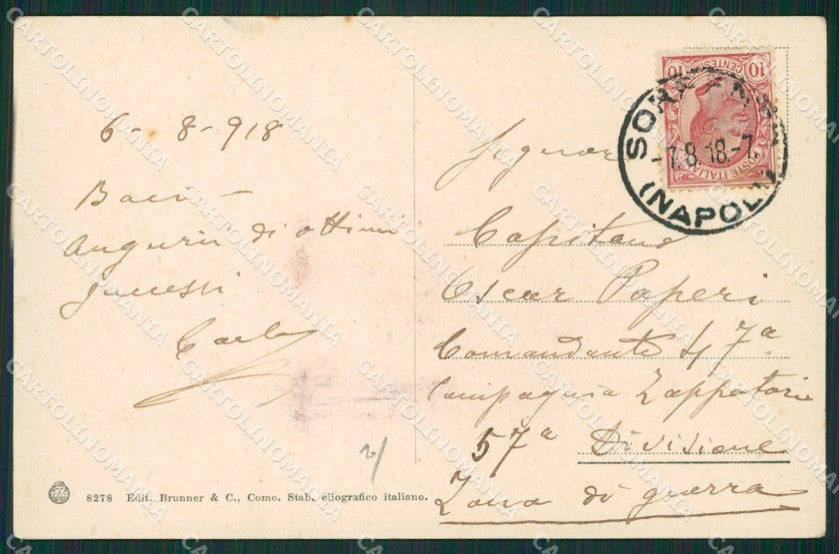 6 - 8 - 918
Baci -
Auguri di ottimi
successi
Carlo
8278 Edit. Brunner & C., Como. Stab. eliografico italiano.
10 CENTESIMI 10
POSTE ITALIANE
-7.8.18.-7
(NAPOLI)
Signor
Capitano
Oscar Paperi
Comandante 47ª
Compagnia Zappatori
57ª Divisione
Zona di guerra
CARTOLINOMANIA